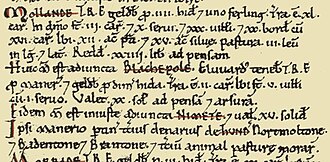 MOLLANDE. T.R.E. geldb p iiii. hid 7 uno ferling. Tra. e. xl.
car. In dnio st iii. car. 7 x. serui. 7 xxx. uilli. 7 xx. bord cu
xvi. car. Ibi xii. ac pti. 7 xv. ac silue. Pastura iii. leu
in lg 7 lat. Redd xxiiii. lib ad pensam.
Huic m est adiuncta BLACHEPOLE. Eluuard teneb T.R.E.
p maner. 7 geldb p dim hida. Tra. e. ii. car. Ibi st. v. uilli
cu. i. seruo. Valet. xx. sol ad pensa 7 arsura.
Eidem m est iniuste adiuncta NIMETE. 7 ual. xv. solid.
Ipsi manerio ptin tcius denarius de HUND Nortmoltone
7 Badentone 7 Brantone. 7 tciu animal pasture morar.